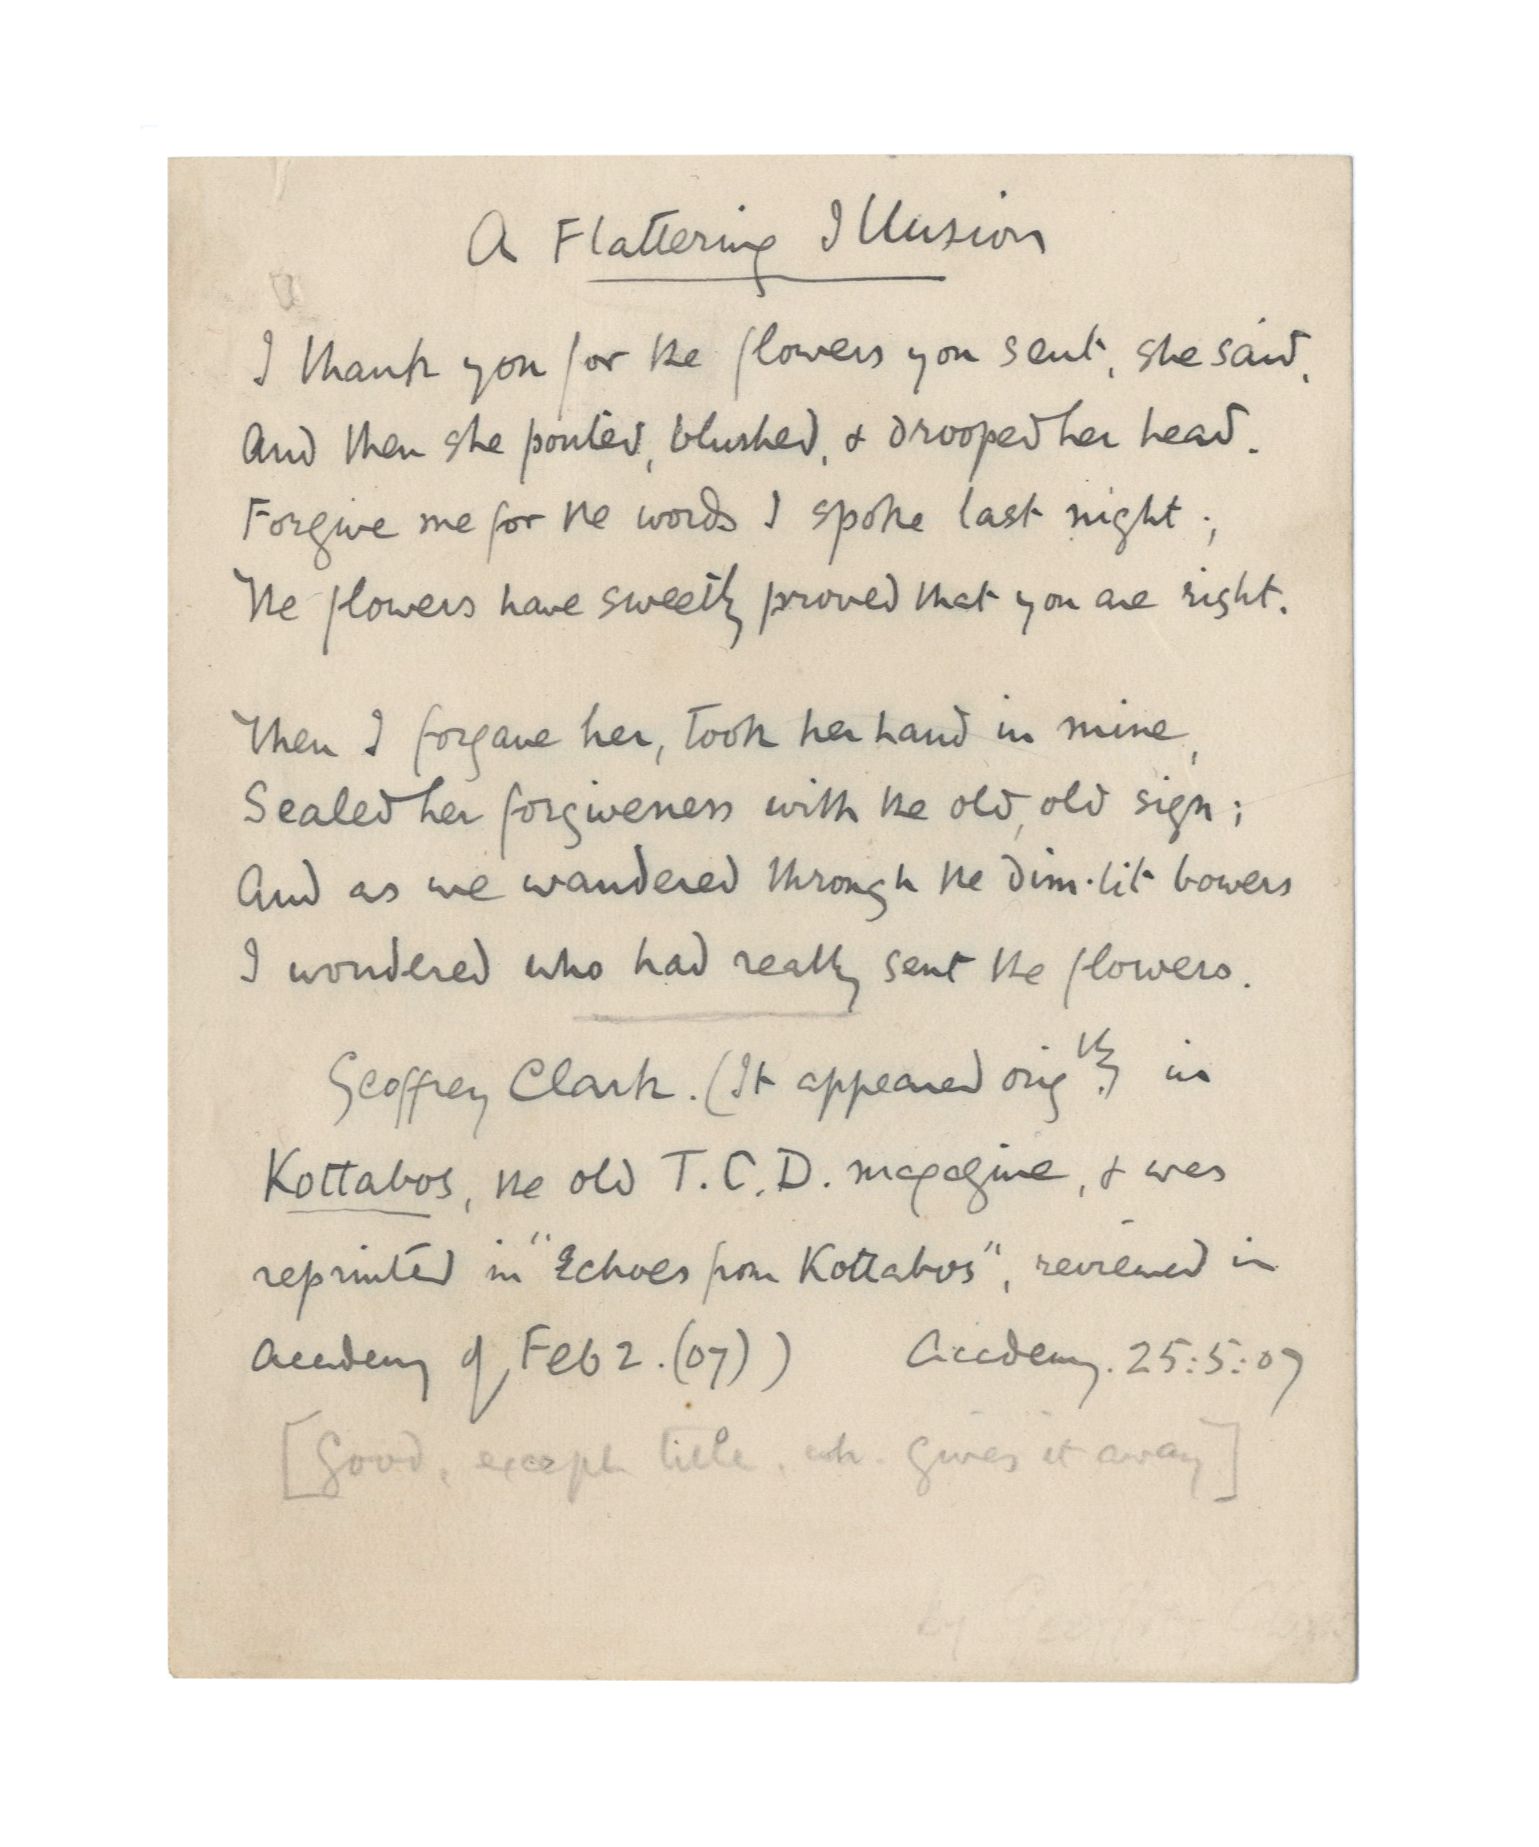 A Flattering Illusion
I thank you for the flowers you sent, she said,
And then she pouted, blushed, & drooped her head.
Forgive me for the words I spoke last night;
The flowers have sweetly proved that you are right.
Then I forgave her, took her hand in mine,
Sealed her forgiveness with the old, old sign;
And as we wandered through the dim-lit bowers
I wondered who had really sent the flowers.
Geoffrey Clark. (It appeared orig.lly in
Kottabos, the old T.C.D. magazine, & was
reprinted in "Echoes from Kottabos", reviewed in
Academy of Feb 2. (07))     Academy. 25:5:07
[Good, except title, wh. gives it away]
by Geoffrey